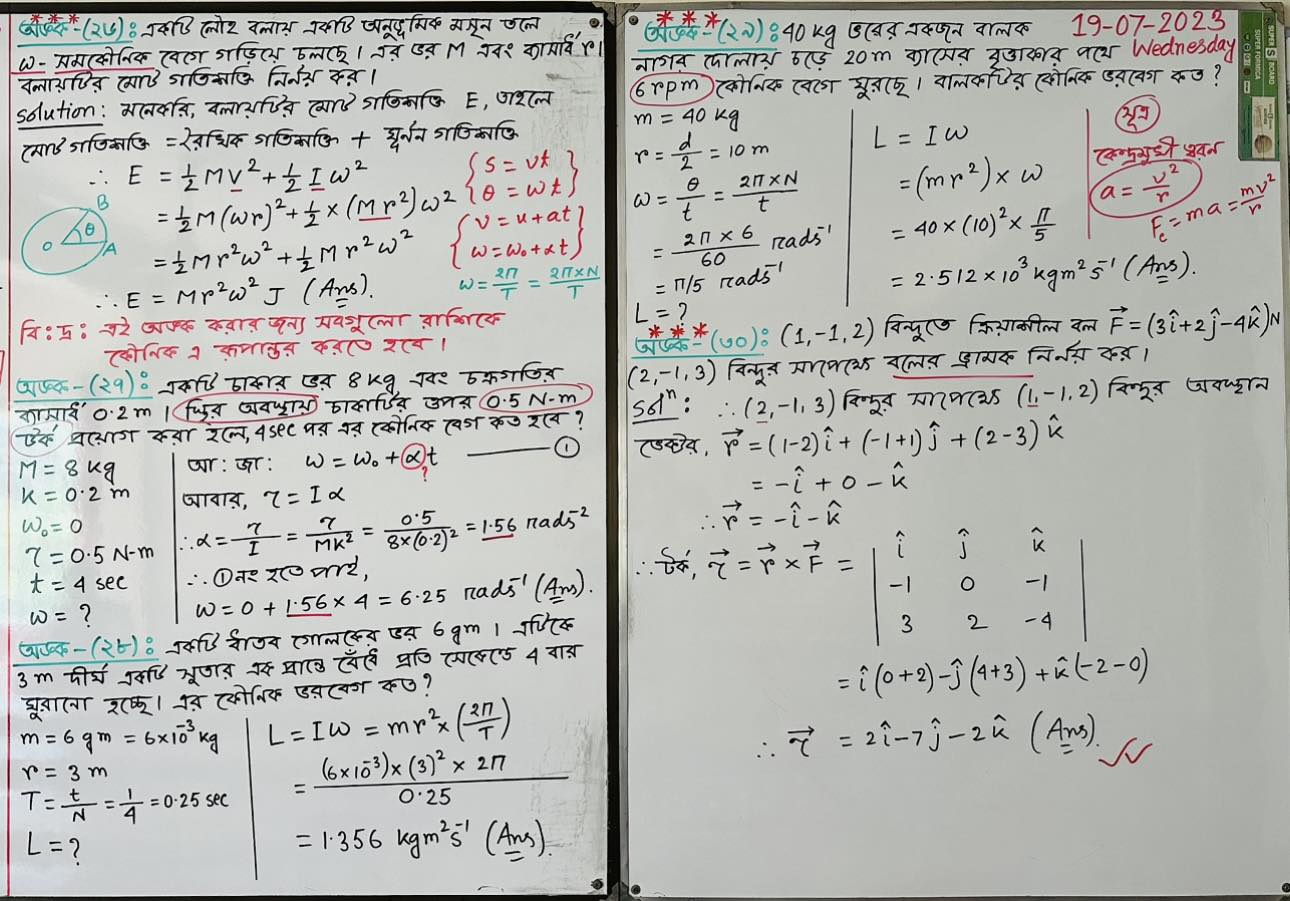 *** অংক-(২৬): একটি লৌহ বলয় একটি অনুভূমিক মসৃন তলে
ω- সমকৌনিক বেগে গড়িয়ে চলছে। এর ভর M এবং ব্যাসার্ধ r।
বলয়টির মোট গতিশক্তি নির্নয় কর।
solution: মনেকরি, বলয়টির মোট গতিশক্তি E, তাহলে
মোট গতিশক্তি = রৈখিক গতিশক্তি + ঘূর্নন গতিশক্তি
∴ E = ½ Mv² + ½ Iω²
= ½ M(ωr)² + ½ × (Mr²)ω²
= ½ Mr²ω² + ½ Mr²ω²
∴ E = Mr²ω² J (Ans).
{ s = vt
θ = ωt }
{ v = u + at
ω = ω₀ + αt }
ω = 2π/T = 2π×N/T
B
θ
O
A
বি:দ্র: এই অংক করার জন্য সবগুলো রাশিকে
কৌনিক এ রূপান্তর করতে হবে।
অংক-(২৭): একটি চাকার ভর 8 kg এবং চক্রগতির
ব্যাসার্ধ 0.2 m। স্থির অবস্থায় চাকাটির উপর 0.5 N-m
টর্ক প্রয়োগ করা হলে, 4 sec পর এর কৌনিক বেগ কত হবে?
M = 8 kg
K = 0.2 m
ω₀ = 0
τ = 0.5 N-m
t = 4 sec
ω = ?
আ: জা: ω = ω₀ + αt ——— ①
?
আবার, τ = Iα
∴ α = τ/I = τ/MK² = 0.5/8×(0.2)² = 1.56 rads⁻²
∴ ① নং হতে পাই,
ω = 0 + 1.56 × 4 = 6.25 rads⁻¹ (Ans).
অংক-(২৮): একটি ধাতব গোলকের ভর 6 gm। এটিকে
3 m দীর্ঘ একটি সুতার এক প্রান্তে বেঁধে প্রতি সেকেন্ডে 4 বার
ঘুরানো হচ্ছে। এর কৌনিক ভরবেগ কত?
m = 6 gm = 6×10⁻³ kg
r = 3 m
T = t/N = 1/4 = 0.25 sec
L = ?
L = Iω = mr² × (2π/T)
= (6×10⁻³)×(3)² × 2π / 0.25
= 1.356 kgm²s⁻¹ (Ans).
*** অংক-(২৯): 40 kg ভরের একজন বালক
19-07-2023
Wednesday
নাগর দোলায় চড়ে 20 m ব্যাসের বৃত্তাকার পথে
6 rpm কৌনিক বেগে ঘুরছে। বালকটির কৌনিক ভরবেগ কত?
m = 40 kg
r = d/2 = 10 m
ω = θ/t = 2π×N/t
= 2π×6/60 rads⁻¹
= π/5 rads⁻¹
L = ?
L = Iω
= (mr²) × ω
= 40×(10)² × π/5
= 2.512×10³ kgm²s⁻¹ (Ans).
সূত্র
কেন্দ্রমুখী ত্বরন
a = v²/r
F_c = ma = mv²/r
SUPER S BOARD
*** অংক-(৩০): (1,-1,2) বিন্দুতে ক্রিয়াশীল বল F⃗ = (3î+2ĵ-4k̂)N
(2,-1,3) বিন্দুর সাপেক্ষে বলের ভ্রামক নির্নয় কর।
Solⁿ: ∴ (2,-1,3) বিন্দুর সাপেক্ষে (1,-1,2) বিন্দুর অবস্থান
ভেক্টর, r⃗ = (1-2)î + (-1+1)ĵ + (2-3)k̂
= -î + 0 - k̂
∴ r⃗ = -î - k̂
∴ টর্ক, τ⃗ = r⃗ × F⃗ = | î ĵ k̂ |
| -1 0 -1 |
| 3 2 -4 |
= î(0+2) - ĵ(4+3) + k̂(-2-0)
∴ τ⃗ = 2î - 7ĵ - 2k̂ (Ans).